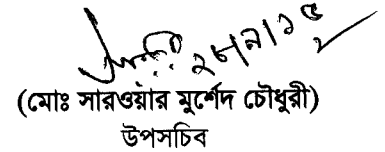 ২৮/৯/১৫
(মোঃ সারওয়ার মুর্শেদ চৌধুরী)
উপসচিব